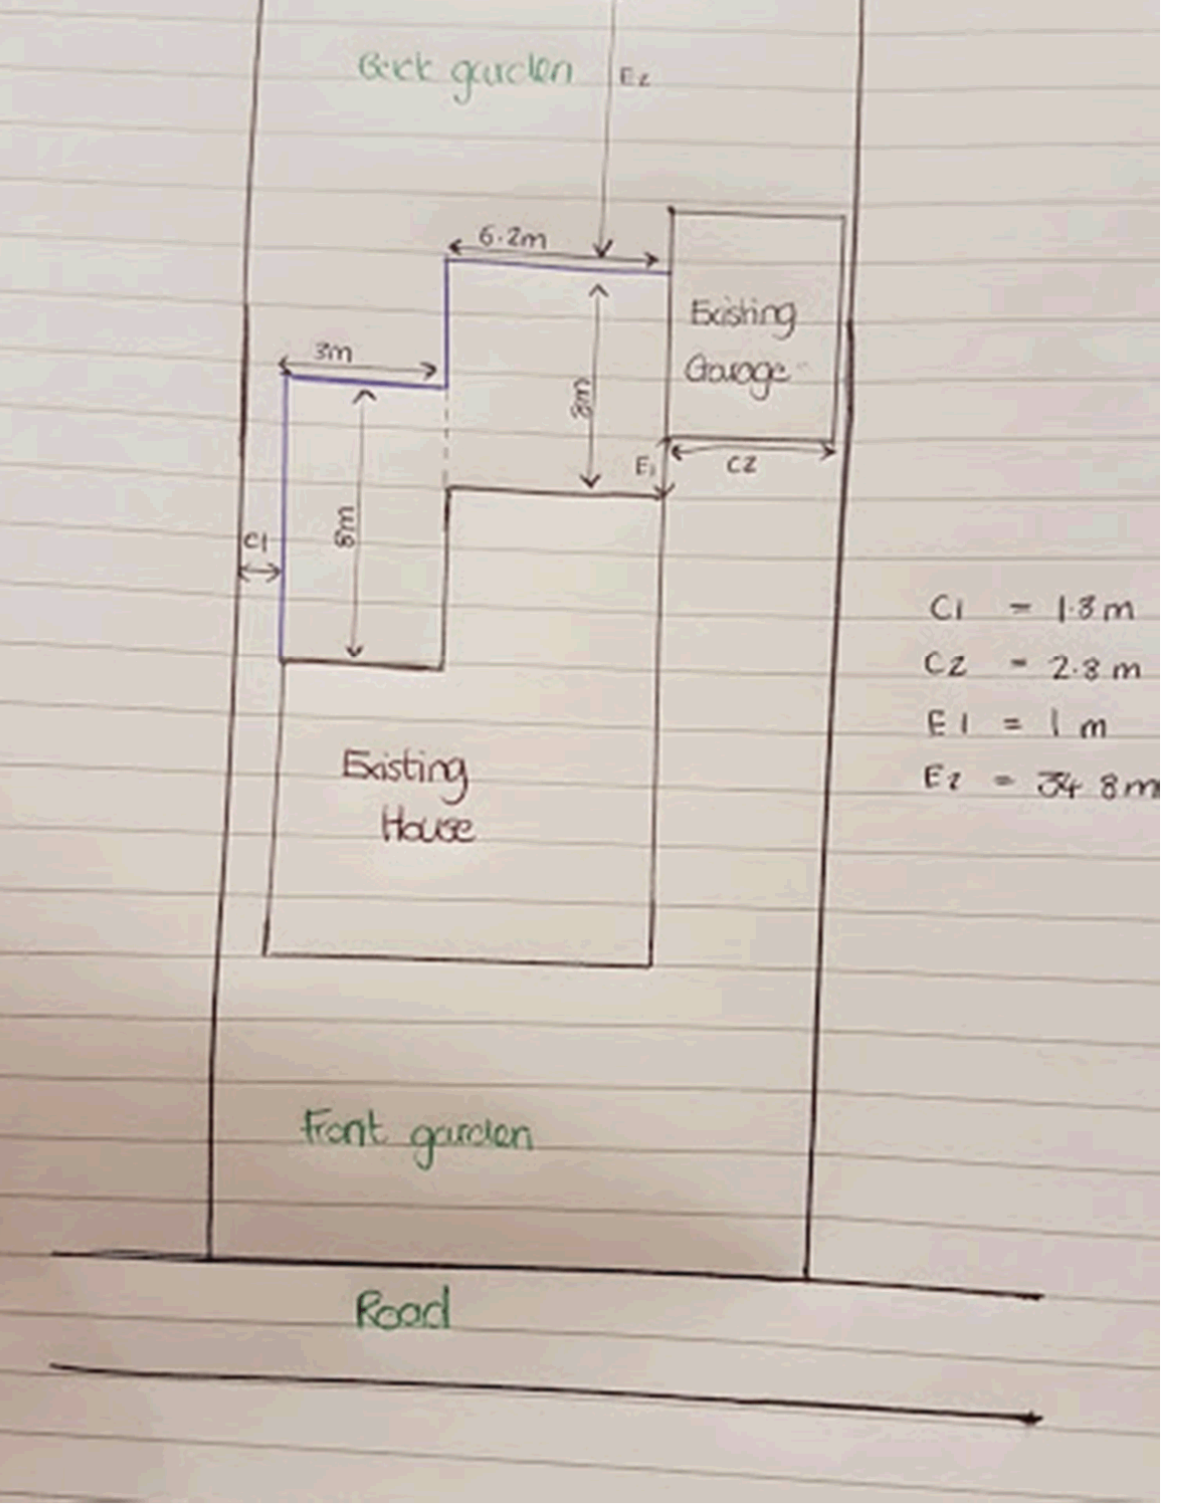 Back garden
E2
6.2m
Existing
Garage
3m
8m
E1
C2
8m
C1
C1 = 1.8m
C2 = 2.8m
E1 = 1m
E2 = 34 8m
Existing
House
Front garden
Road